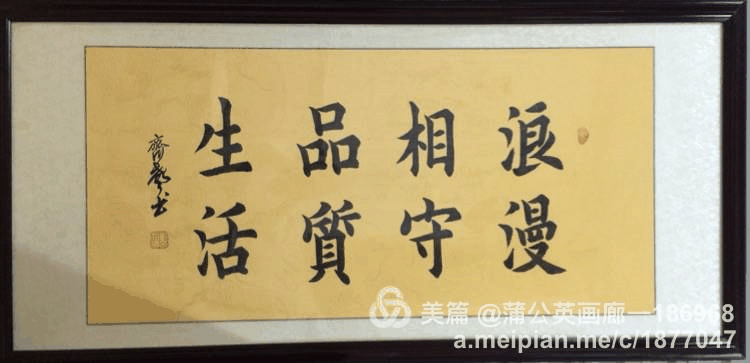 浪漫
相守
品質
生活
美篇 @蒲公英画廊一186968
a.meipian.me/c/1877047